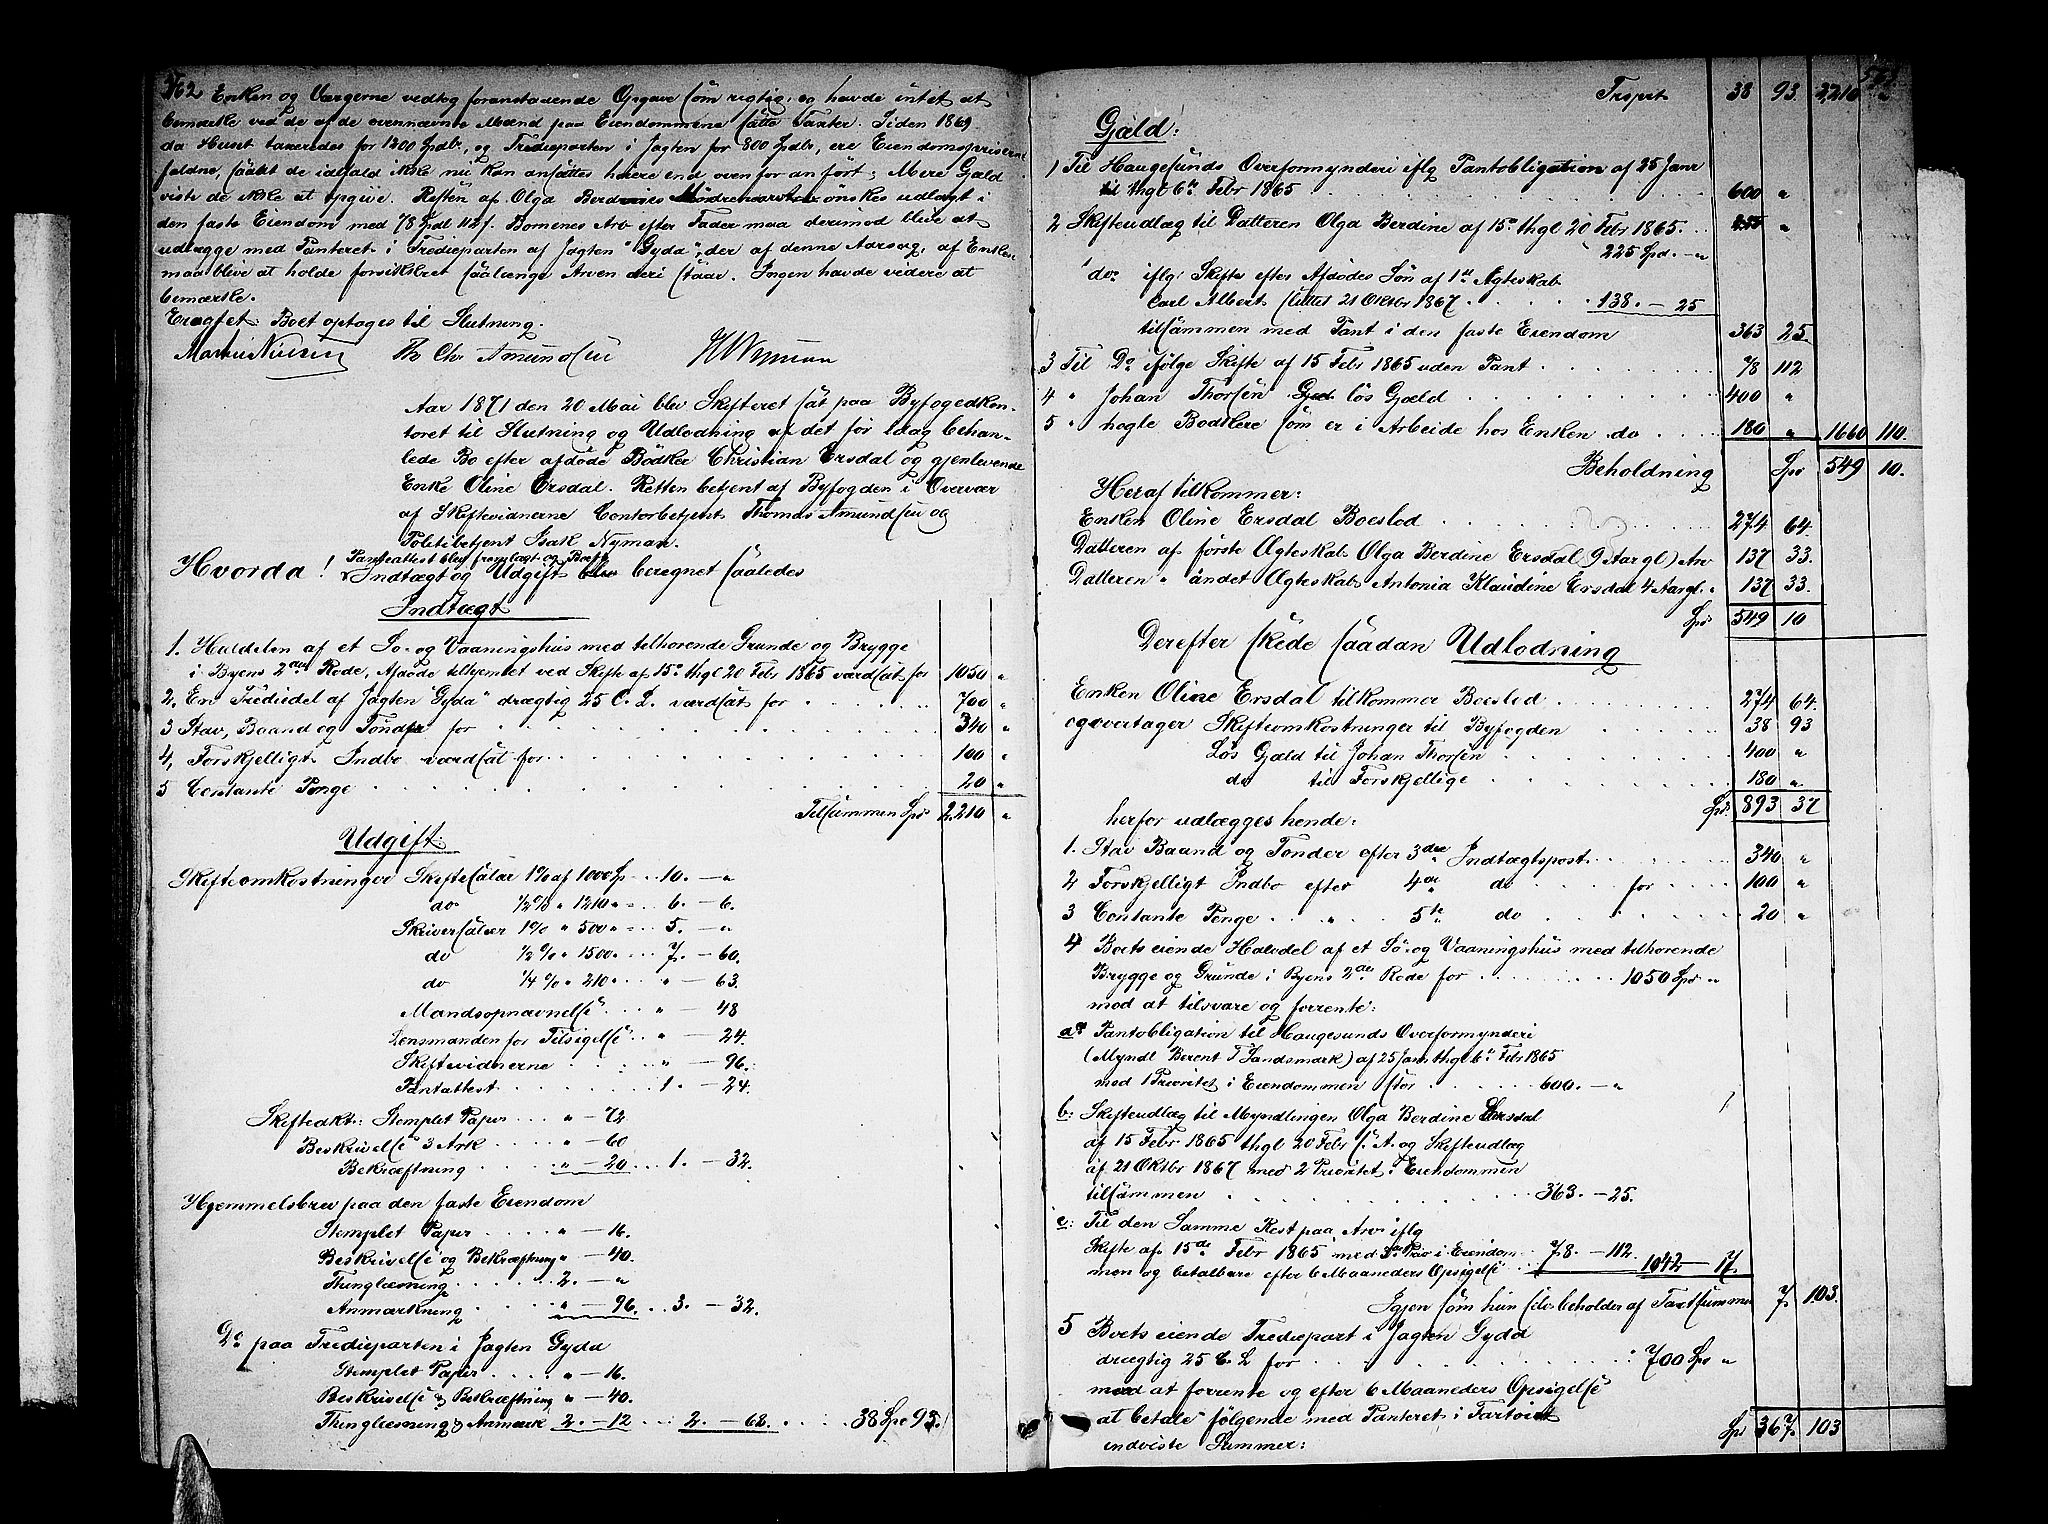 562 Enken og Værgerne vedtog foranstaaende Opgave som rigtig, og havde intet at
bemærke ved de af de ovennævnte Mænd paa Eiendommene satte Taxter. Siden 1869
da Huset taxeredes for 1200 Spdlr, og Trediéparten i Jagten for 800 Spdlr, ere Eiendomspriserne
faldne, saa at de idetfald ikke nu kan ansættes høiere end ovenfor anført; Mere Gæld
vidste de ikke at opgive. Resten af Olga Berdines Mödrenearv önskes udlagt i
den faste Eiendom med 78 Spd 112 s. Börnenes Arv efter Fader maa derimod blive at
udlægge med Panteret i Trediéparten af Jagten "Gyda", der af denne Aarsag, af Enken
maa blive at holde forsikkret saalænge Arven deri staar. Ingen havde videre at
bemærke.
Eragtet: Boet optages til Slutning.
Marius Nielsen Th Chr Amundsen I Nyman
Aar 1871 den 20 Mai blev Skifteret sat paa Byfogedkon-
toret til Slutning og Udlodning af det för idag behan-
lede Bo efter afdöde Bödker Christian Ersdal og gjenlevende
Enke Oline Ersdal. Retten betjent af Byfogden i Overvær
af Skiftevidnerne Contorbetjent Thomas Amundsen og
Politibetjent Isak Nyman.
Hvorda! Panteattest blev fremlagt og Boets
Indtægt og Udgift blev beregnet saaledes
Indtægt
1. Halvdelen af et Sö- og Vaaningshus med tilhorende Grunde og Brygge
i Byens 2den Rode, Afdöde tilhjemlet ved Skifte af 15de thgl 20 Febr 1865 værdsat for 1050 "
2. En Trediedel af Jagten "Gyda" drægtig 25 C. L. værdsat for 700 "
3 Stav, Baand og Tönder for 340 "
4, Forskjelligt Indbo værdsat for 100 "
5 Contante Penge 20 "
Tilsammen Spd 2.210 "
Udgift:
Skifteomkostninger Skiftesalær 1% af 1000 Sp 10. – "
do 1/2 % " 1210 " 6. – 6.
Skriversalær 1% " 500 " 5. – "
do 1/2 % " 1500 " 7. – 60.
do 1/4 % " 210 " " – 63.
Mandsopnævnelse " – 48
Lensmanden for Tilsigelse " – 24.
Skiftevidnerne " – 96.
Pantattest 1. – 24.
Skifteakt: Stemplet Papir " – 72
Beskrivelse 3 Ark " – 60
Bekræftning " – 20 1. – 32.
Hjemmelsbrev paa den faste Eiendom
Stemplet Papir " – 16.
Beskrivelse og Bekræftning " – 40.
Thinglæsning 2. – "
Anmærkning " – 96. 3. – 32.
Do paa Trediéparten i Jagten Gyda
Stemplet Papir " – 16.
Beskrivelse & Bekræftning " – 40.
Thinglæsning & Anmærk 2. – 12 2. – 68. 38 Spd 93.
563
Trspt 38 93. 2,210 "
Gjæld:
1 Til Haugesunds Overformynderi iflg Pantobligation af 25 Janr
til thgl 6te Febr 1865 600 "
2 Skifteudlæg til Datteren Olga Berdine af 15de thgl 20 Febr 1865. "
225 Spd. – "
do iflg Skifte efter Afdödes Sön af 1ste Ægteskab
Carl Albert sluttet 21 Oktbr 1867 138. – 25
tilsammen med Pant i den faste Eiendom 363 25.
3 Til Do ifölge Skifte af 15 Febr 1865 uden Pant 78 112
4 " Johan Thorsen Gjæl lös Gjæld 400 "
5 " nogle Bödkere som er i Arbeide hos Enken do 180 " 1660 110.
Beholdning Spd 549 10.
Heraf tilkommer:
Enken Oline Ersdal Boeslod 274 64.
Datteren af förste Ægteskab Olga Berdine Ersdal 9 Aar gl) Arv 137 33.
Datteren " andet Ægteskab Antonia Klaudine Ersdal 4 Aar gl " 137 33.
Spd 549 10
Derefter skede saadan Udlodning
Enken Oline Ersdal tilkommer Boeslod 274 64.
og overtager Skifteomkostninger til Byfogden 38 93
Lös Gjæld til Johan Thorsen 400 "
do til Forskjellige 180 "
Spd. 893 37
herfor udlægges hende:
1. Stav Baand og Tönder efter 3die Indtægtspost 340 "
2 Forskjelligt Indbo efter 4de do for 100 "
3 Contante Penge " 5te do 20 "
4 Boets eiende Halvdel af et Sö- og Vaaningshus med tilhorende
Brygge og Grunde i Byens 2den Rode for 1050 Spd "
mod at tilsvare og forrente:
a: Pantobligation til Haugesunds Overformynderi
(Myndl Berent T Sandsmark) af 25 Jan thgl 6te Febr 1865
med 1 Prioritet i Eiendommen stor 600. – "
b: Skifteudlæg til Myndlingen Olga Berdine Ersdal
af 15 Febr 1865 thgl 20 Febr s. A. og Skifteudlæg
af 21 Oktbr 1867 med 2 Prioritet i Eiendommen
tilsammen 363. – 25.
c: Til den Samme Rest paa Arv iflg
Skifte af 15de Febr 1865 med 3die Prior i Eiendom 78. – 112.
men og betalbare efter 6 Maaneders Opsigelse 1042 – 17.
Igjen som hun selv beholder af Taxtsummen 7. 103.
5 Boets eiende Trediepart i Jagten Gyda
drægtig 25 C. L for 700 Spd "
mod at forrente og efter 6 Maaneders Opsigelse
at betale fölgende med Panteret i Fartöiet
indviste Summer: Spd 467. 103